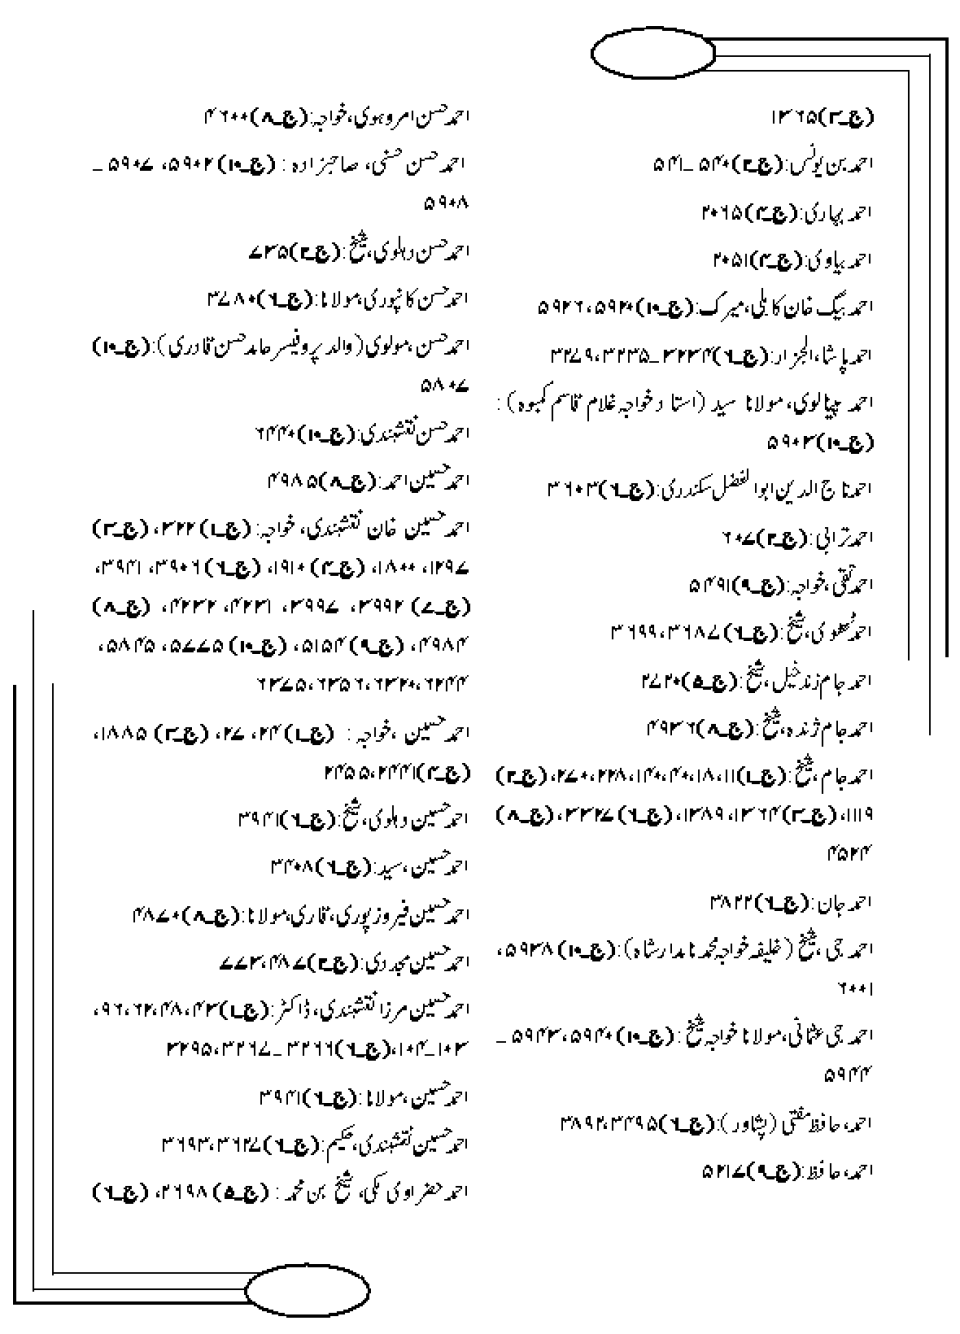 (ج۔۳)۱۳۶۵
احمد بن یونس:(ج۔۲)۵۴۰۔۵۴۱
احمد بہاری:(ج۔۴)۲۰۶۵
احمد بیاوی:(ج۔۴)۲۰۵۱
احمد بیگ خان کابلی،میرک:(ج۔۱۰)۵۹۲۰،۵۹۲۶
احمد پاشا،الجزار:(ج۔۶)۳۲۳۴۔۳۲۳۵،۳۲۷۹
احمد چپالوی، مولانا سید (استاد خواجہ غلام قاسم کمبوہ):
(ج۔۱۰)۵۹۰۳
احمد تاج الدین ابوالفضل سکندری:(ج۔۶)۳۶۰۳
احمد ترابی:(ج۔۲)۶۰۷
احمد تقی،خواجہ:(ج۔۹)۵۴۹۱
احمد ٹھٹھوی،شیخ:(ج۔۶)۳۶۸۷،۳۶۹۹
احمد جام زندخیل،شیخ:(ج۔۵)۲۷۲۰
احمد جام ژندہ،شیخ:(ج۔۸)۴۹۳۶
احمد جام،شیخ:(ج۔۱)۱۱،۱۸،۴۰،۱۴۰،۲۲۸،۲۷۰، (ج۔۲)
۱۱۱۹، (ج۔۳)۱۳۶۴،۱۳۸۹، (ج۔۶)۳۳۲۷، (ج۔۸)
۴۵۲۴
احمد جان:(ج۔۶)۳۸۲۲
احمد جی،شیخ (خلیفہ خواجہ محمد نامدار شاہ):(ج۔۱۰)۵۹۳۸،
۶۰۰۱
احمد جی عثمانی،مولانا خواجہ شیخ:(ج۔۱۰)۵۹۴۰،۵۹۴۳۔
۵۹۴۴
احمد، حافظ مفتی (پشاور):(ج۔۶)۳۴۹۵،۳۸۹۲
احمد، حافظ:(ج۔۹)۵۲۱۷
احمد حسن امروہوی،خواجہ:(ج۔۸)۴۶۰۰
احمد حسن حسنی، صاحبزادہ: (ج۔۱۰)۵۹۰۲، ۵۹۰۷۔
۵۹۰۸
احمد حسن دہلوی،شیخ:(ج۔۲)۷۳۵
احمد حسن کانپوری،مولانا:(ج۔۶)۳۷۸۰
احمد حسن،مولوی (والد پروفیسر حامد حسن قادری):(ج۔۱۰)
۵۸۰۷
احمد حسن نقشبندی:(ج۔۱۰)۶۴۴۰
احمد حسین احمد:(ج۔۸)۴۹۸۵
احمد حسین خان نقشبندی، خواجہ: (ج۔۱)۳۲۲، (ج۔۳)
۱۲۹۷، ۱۸۰۰، (ج۔۴)۱۹۱۰، (ج۔۶)۳۹۰۶، ۳۹۴۱،
(ج۔۷) ۳۹۹۲، ۳۹۹۷، ۴۲۳۱، ۴۲۳۲، (ج۔۸)
۴۹۸۴، (ج۔۹)۵۱۵۴، (ج۔۱۰)۵۷۷۵، ۵۸۴۵،
۶۲۴۴،۶۳۲۰،۶۳۵۶،۶۳۷۵
احمد حسین، خواجہ: (ج۔۱)۲۴، ۲۷، (ج۔۳) ۱۸۸۵،
(ج۔۴)۲۴۴۱،۲۴۵۵
احمد حسین دہلوی،شیخ:(ج۔۶)۳۹۴۱
احمد حسین،سید:(ج۔۶)۳۴۰۸
احمد حسین فیروزپوری،قاری،مولانا:(ج۔۸)۴۸۷۰
احمد حسین مجددی:(ج۔۲)۴۸۷،۷۷۳
احمد حسین مرزا نقشبندی،ڈاکٹر:(ج۔۱)۴۳،۴۸،۶۲،۹۶،
۱۰۳۔۱۰۴،(ج۔۶)۳۲۶۶۔۳۲۶۷،۳۲۹۵
احمد حسین،مولانا:(ج۔۶)۳۹۴۱
احمد حسین نقشبندی،حکیم:(ج۔۶)۳۶۲۷،۳۶۹۳
احمد حضراوی مکی، شیخ بن محمد: (ج۔۵) ۲۶۹۸، (ج۔۶)